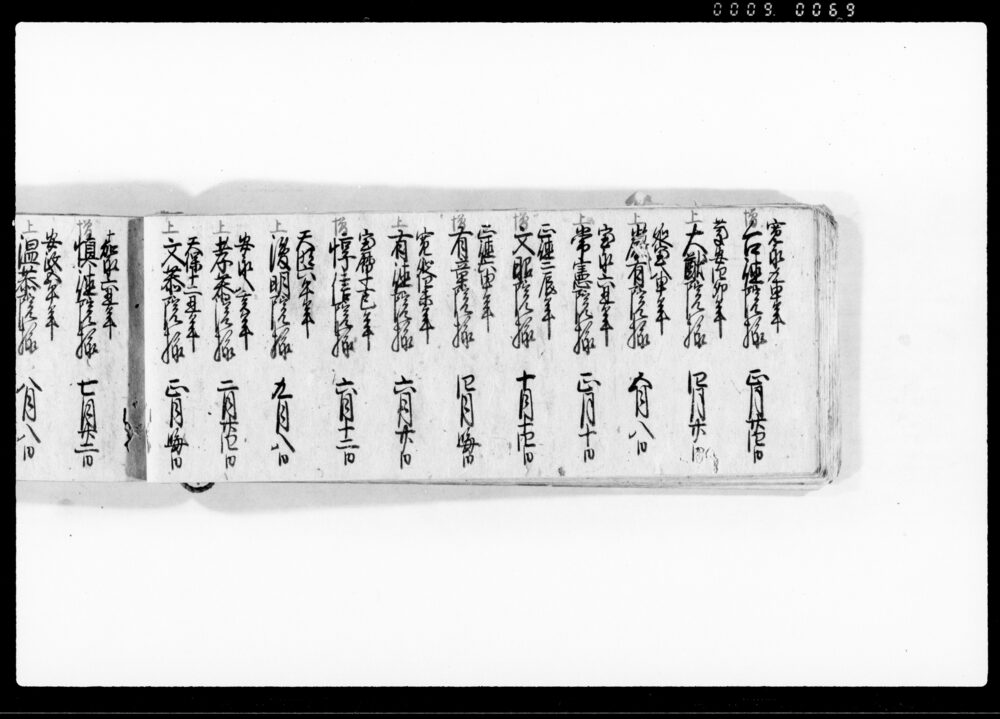 0009 0069
寛永九申年
増 台徳院様 正月廿四日
慶安四卯年
上 大猷院様 四月廿日
延宝八申年
上 厳有院様 五月八日
宝永六丑年
上 常憲院様 正月十日
正徳二辰年
増 文昭院様 十月十四日
正徳六申年
増 有章院様 四月晦日
寛延四未年
上 有徳院様 六月廿日
宝暦十一巳年
増 惇信院様 六月十二日
天明六午年
上 浚明院様 九月八日
安永八亥年
上 孝恭院様 二月廿四日
天保十二丑年
上 文恭院様 正月晦日
嘉永六丑年
増 慎徳院様 七月廿二日
安政五午年
上 温恭院様 八月八日